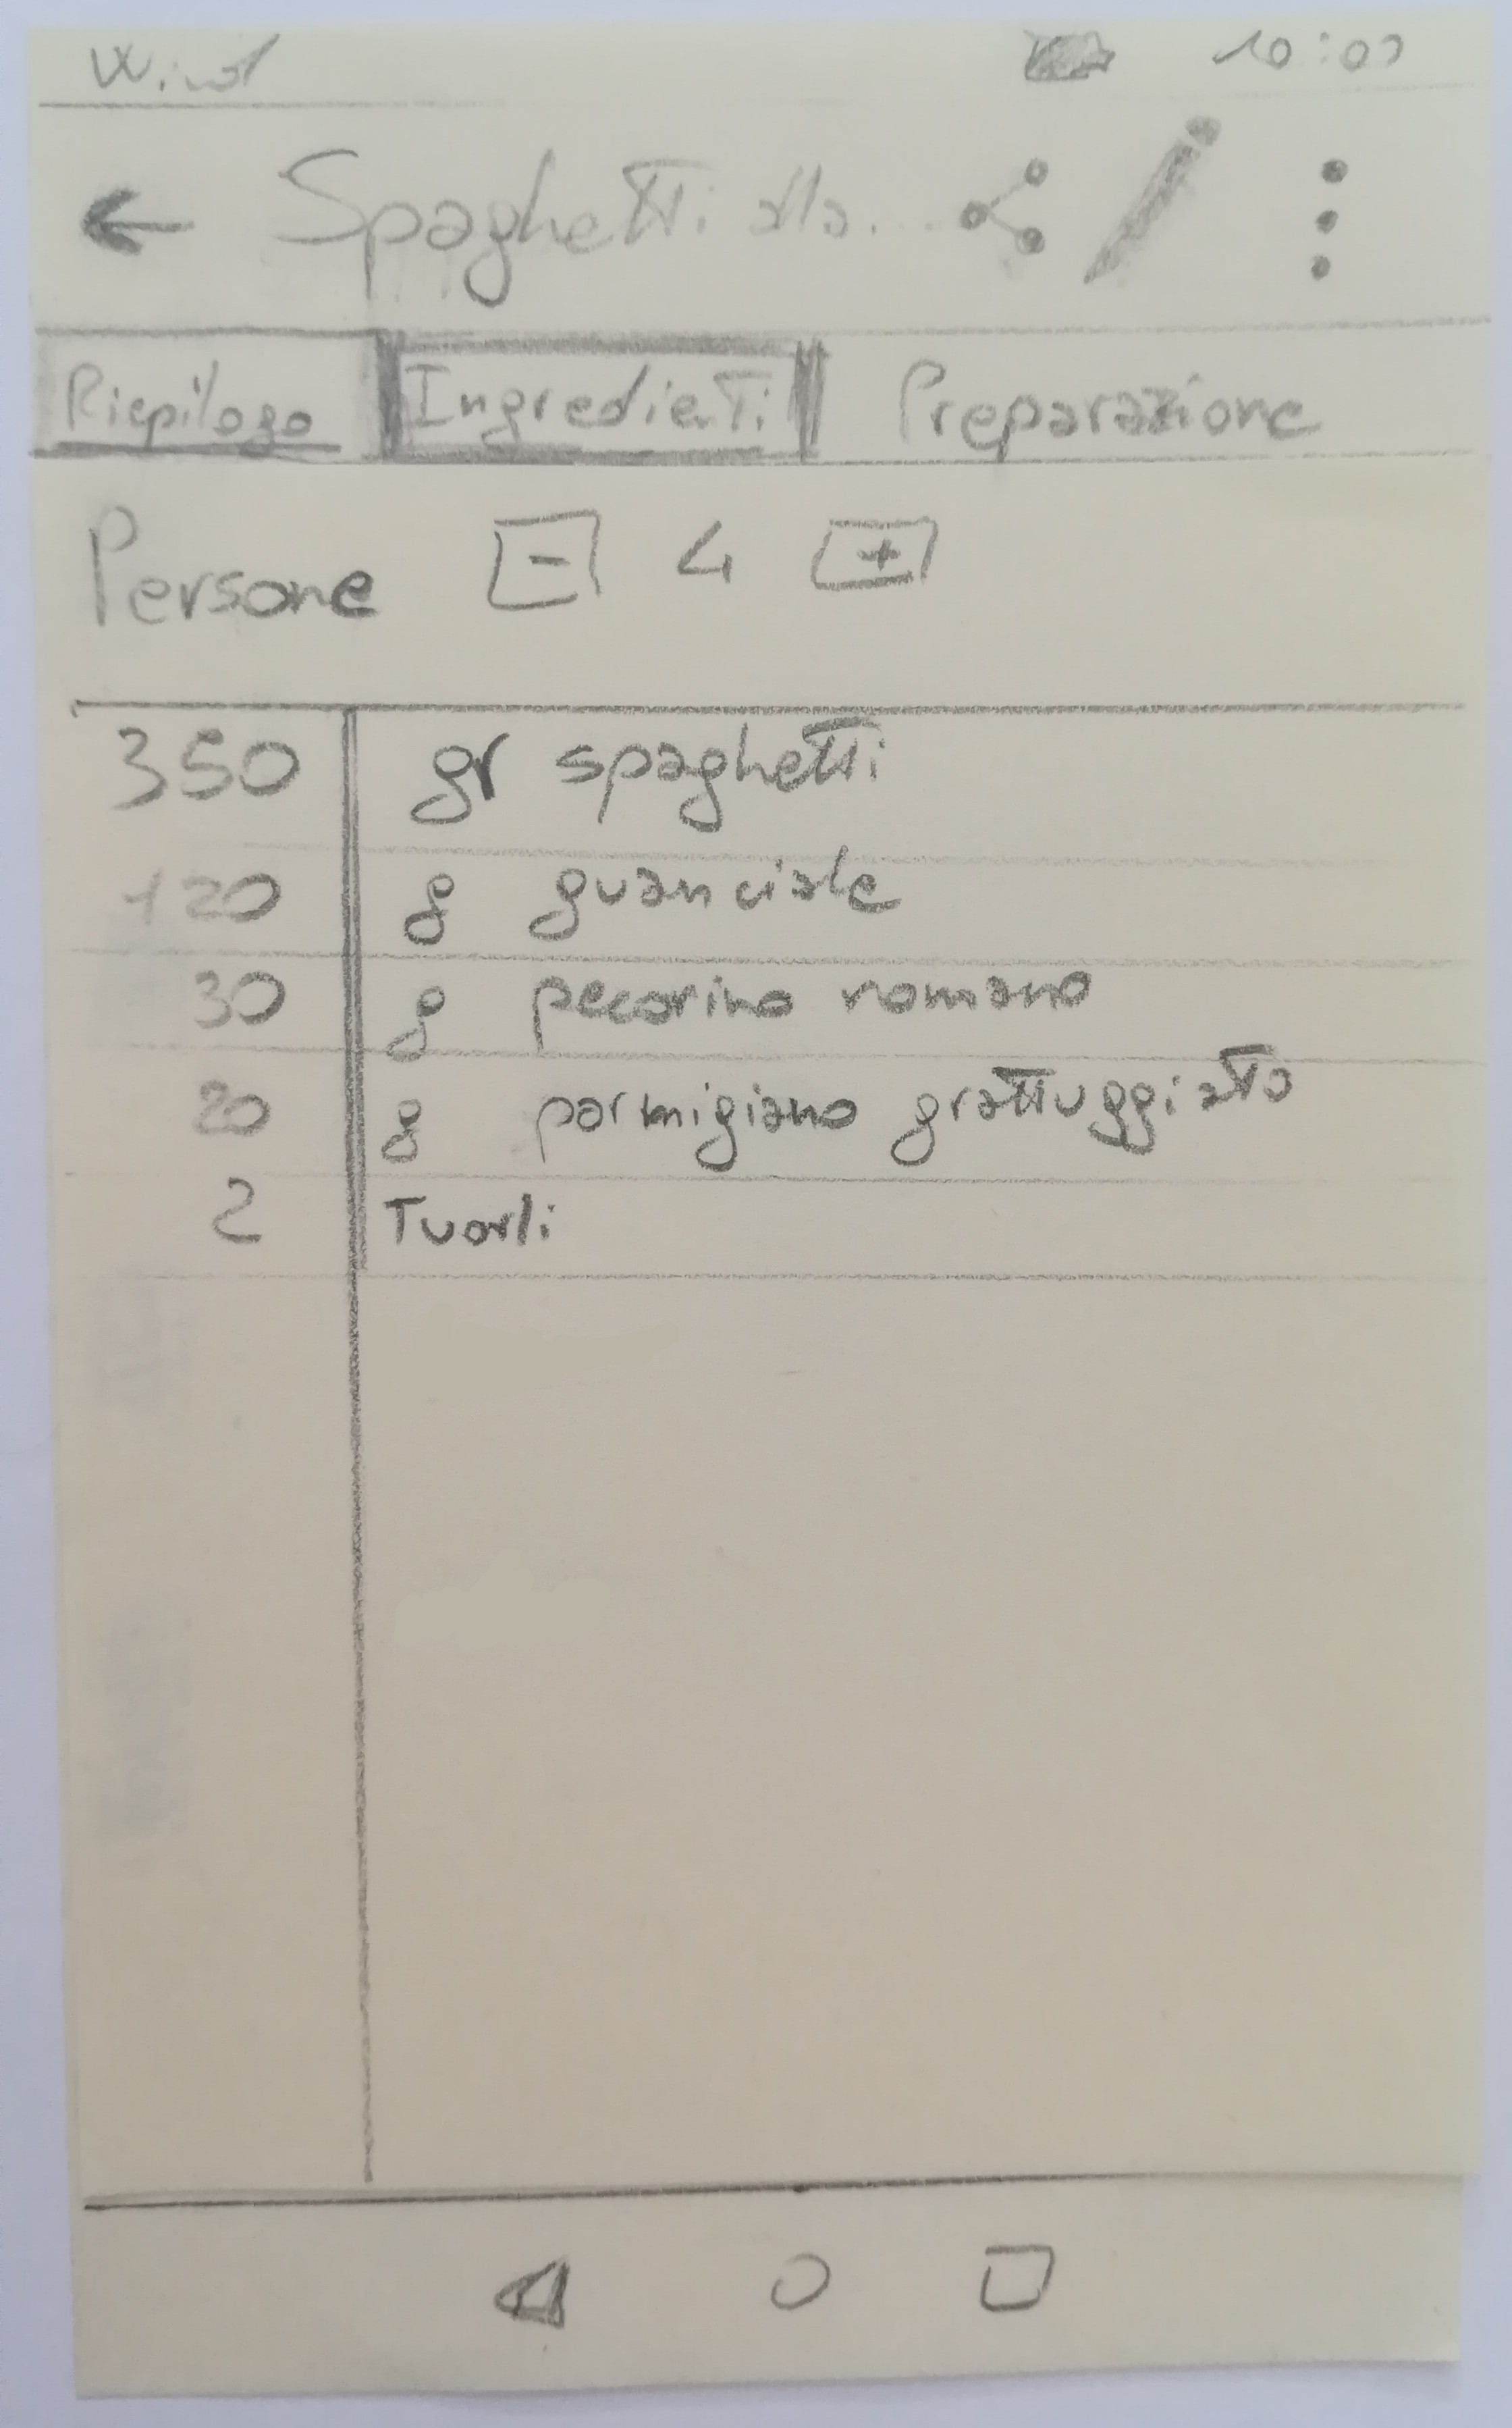 Wind 10:00
Spaghetti alla...
Riepilogo Ingredienti Preparazione
Persone - 4 +
350 gr spaghetti
120 g guanciale
30 g pecorino romano
20 g parmigiano grattuggiatto
2 Tuorli